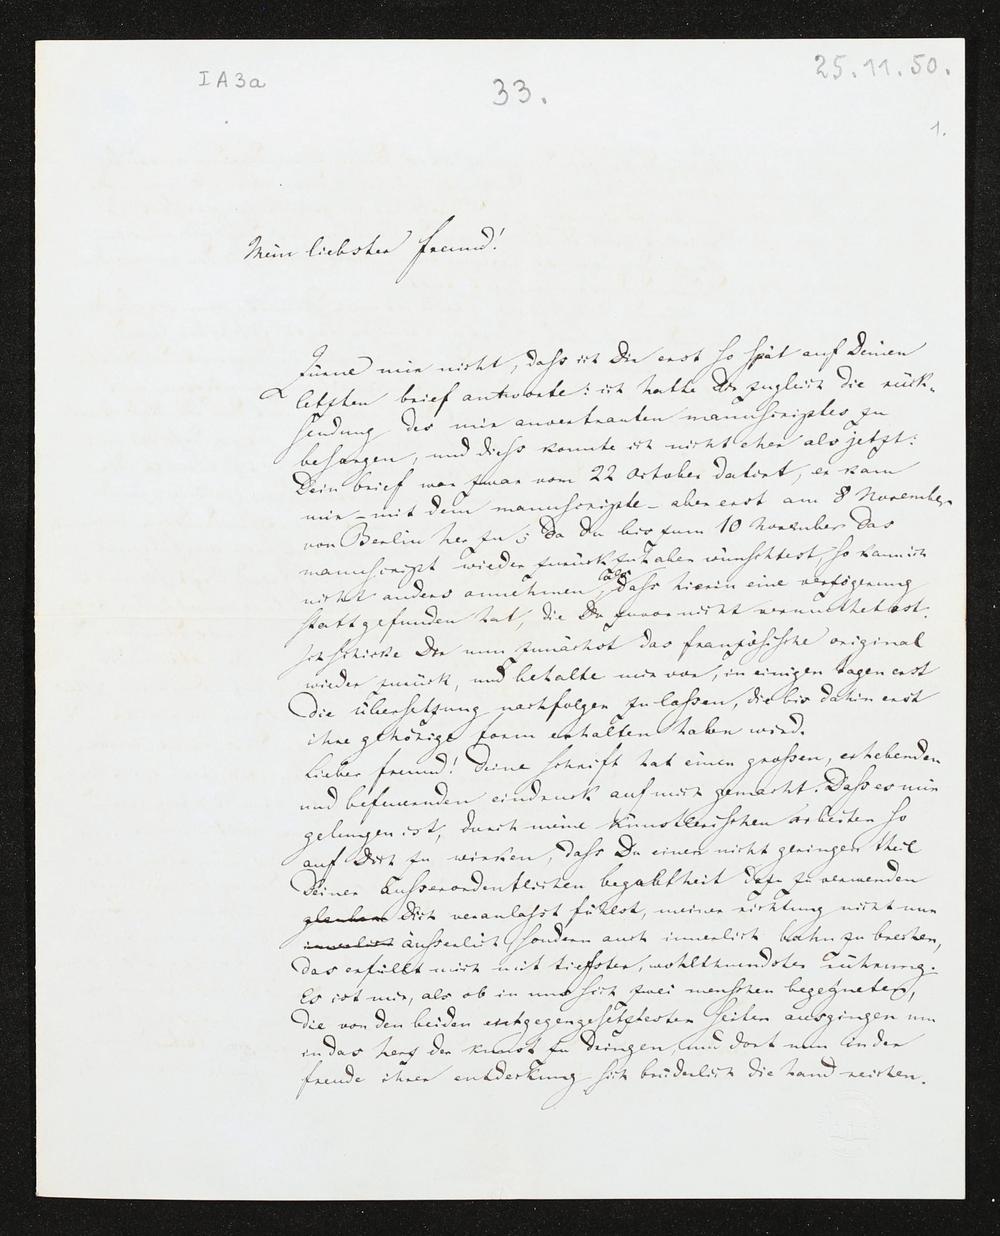 I A 3a
33.
25.11.50.
1.
Mein liebster freund!
Zürne mir nicht, dass ich Dir erst so spät auf Deinen
letzten brief antworte: ich hatte Dir zugleich die rück-
sendung des mir anvertrauten manuscriptes zu
besorgen, und diess konnte ich nicht eher als jetzt:
Dein brief war zwar vom 22 october datirt, er kam
mir – mit dem manuscripte – aber erst am 8 November
von Berlin her zu; da Du bis zum 10 november das
manuscript wieder zurück zu haben wünschtest, so kann ich
nicht anders annehmen, als dass hierin eine verzögerung
stattgefunden hat, die Du zuvor nicht vermuthetest.
Ich schicke Dir nun zunächst das französische original
wieder zurück, und behalte mir vor, in einigen tagen erst
die übersetzung nachfolgen zu lassen, die bis dahin erst
ihre gehörige form erhalten haben wird.
Lieber freund! Deine schrift hat einen grossen, erhebenden
und befeuernden eindruck auf mich gemacht. Dass es mir
gelungen ist, durch meine künstlerischen arbeiten so
auf Dich zu wirken, dass Du einen nicht geringen theil
Deiner ausserordentlichen begabtheit dazu zu verwenden
Dich veranlasst fühlst, meiner richtung nicht nur
äusserlich sondern auch innerlich bahn zu brechen,
das erfüllt mich mit tiefster, wohlthuendster rührung.
Es ist mir, als ob in uns sich zwei menschen begegneten,
die von den beiden entgegengesetztesten seiten ausgingen um
in das herz der kunst zu dringen, und dort nun in der
freude ihrer entdeckung sich brüderlich die hand reichen.